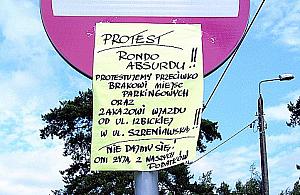 PROTEST
RONDO
ABSURDU !!
PROTESTUJEMY PRZECIWKO
BRAKOWI MIEJSC
PARKINGOWYCH
ORAZ
ZAKAZOWI WJAZDU
OD UL. IZBICKIEJ
W UL. SZRENIAWSKĄ !
NIE DAJMY SIĘ !
ONI ŻYJĄ Z NASZYCH
PODATKÓW